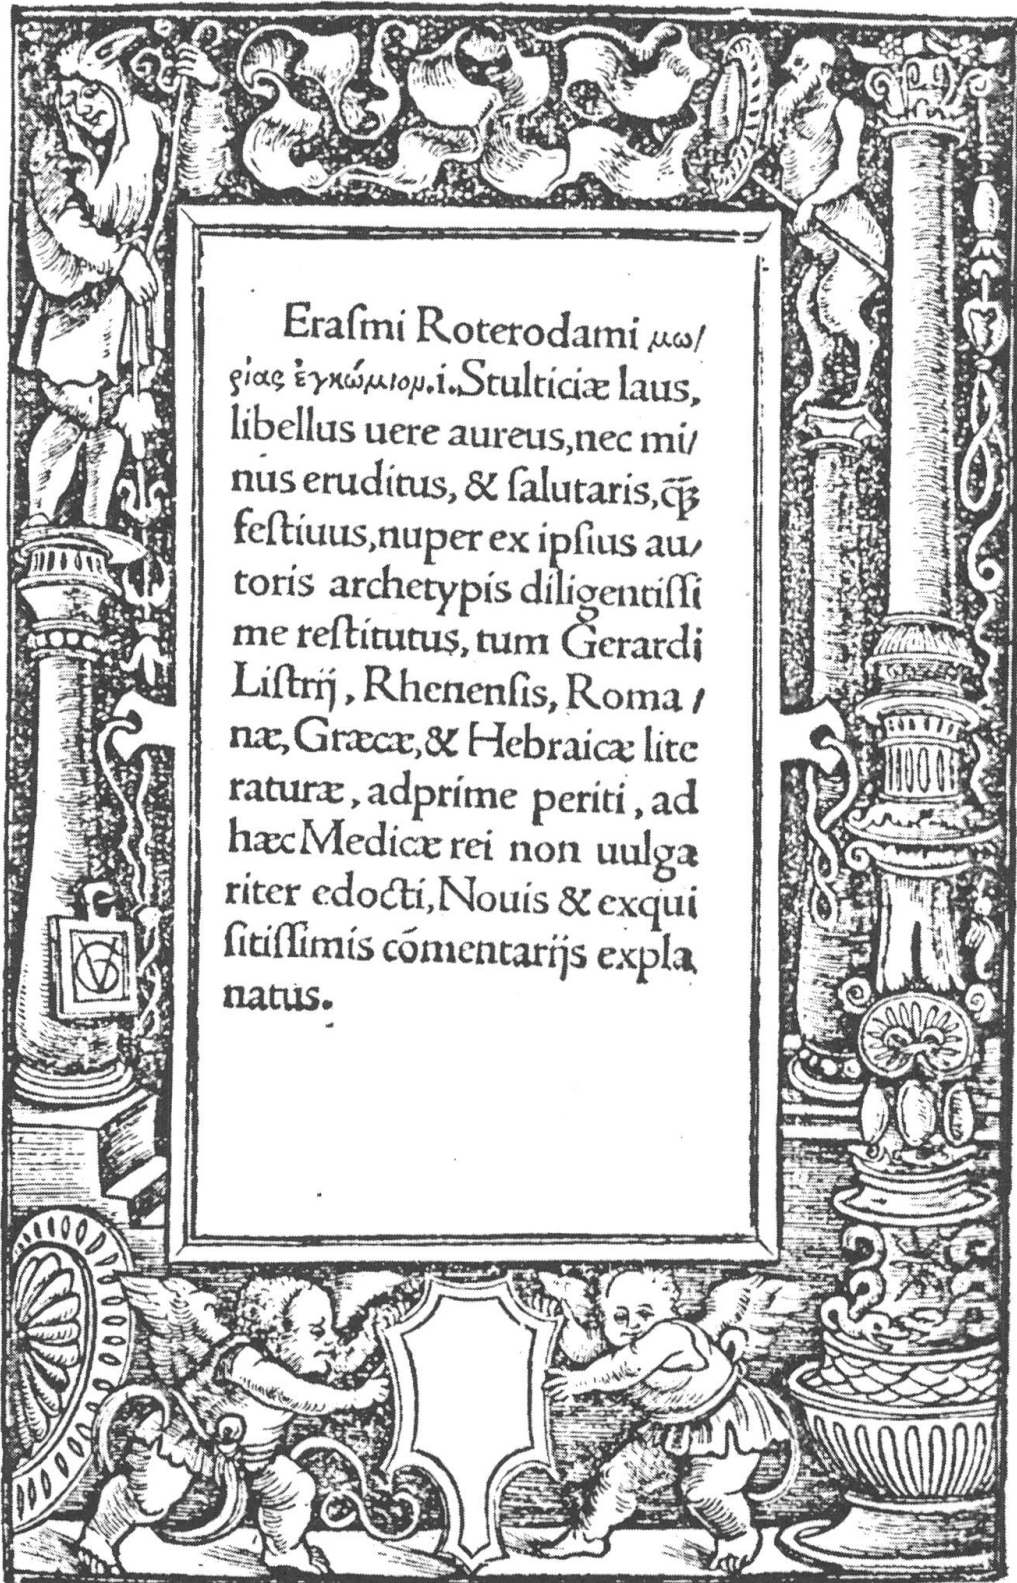 Eraſmi Roterodami μω/
ρίας ἐγκώμιομ.i.Stulticiæ laus,
libellus uere aureus,nec mi/
nus eruditus, & ſalutaris,q̃ꝫ
feſtiuus,nuper ex ipſius au/
toris archetypis diligentiſſi
me reſtitutus, tum Gerardi
Liſtrij, Rhenenſis, Roma /
næ,Græcæ,& Hebraicæ lite
raturæ, adprime periti, ad
hæc Medicæ rei non uulga
riter edocti, Nouis & exqui
ſitiſſimis cōmentarijs expla
natus.